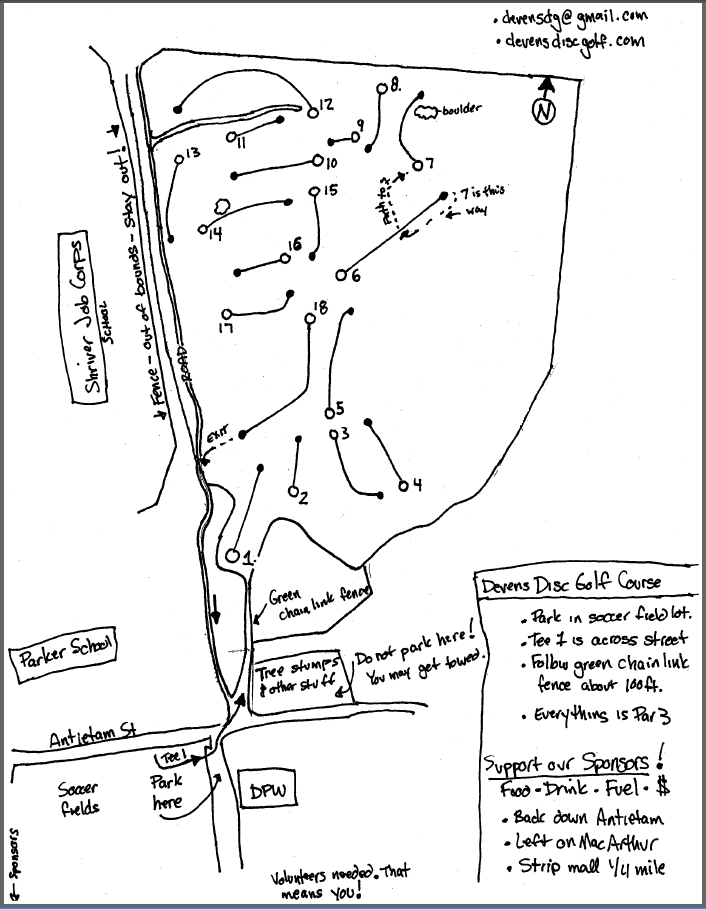 • devensdg@gmail.com
• devensdiscgolf.com
N
8.
boulder
12
9
11
7
13
10
15
path to 7
7 is this
way
14
16
6
17
18
Shriver Job Corps
School
Fence - out of bounds - stay out!
ROAD
5
3
EXIT
4
2
1.
Green
chain link fence
Parker School
Tree stumps
& other stuff
Do not park here!
You may get towed.
Antietam St
Tee 1
Soccer
fields
Park
here
DPW
← Sponsors
Volunteers needed. That
means YOU!
Devens Disc Golf Course
• Park in soccer field lot.
• Tee 1 is across street
• Follow green chain link
fence about 100ft.
• Everything is Par 3
Support our Sponsors!
Food - Drink - Fuel - $
• Back down Antietam
• Left on MacArthur
• Strip mall 1/4 mile